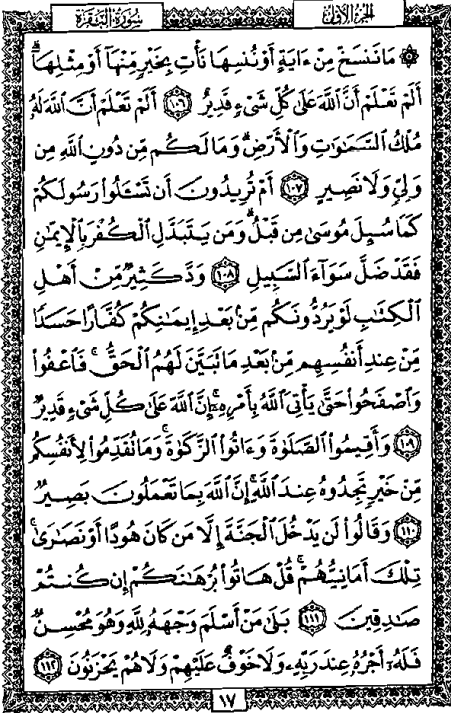 الجزء الأول
سورة البقرة
۞ مَا نَنسَخْ مِنْ ءَايَةٍ أَوْ نُنسِهَا نَأْتِ بِخَيْرٍ مِّنْهَآ أَوْ مِثْلِهَآ ۗ
أَلَمْ تَعْلَمْ أَنَّ ٱللَّهَ عَلَىٰ كُلِّ شَىْءٍ قَدِيرٌ ١٠٦ أَلَمْ تَعْلَمْ أَنَّ ٱللَّهَ لَهُۥ
مُلْكُ ٱلسَّمَٰوَٰتِ وَٱلْأَرْضِ ۗ وَمَا لَكُم مِّن دُونِ ٱللَّهِ مِن
وَلِىٍّ وَلَا نَصِيرٍ ١٠٧ أَمْ تُرِيدُونَ أَن تَسْـَٔلُوا۟ رَسُولَكُمْ
كَمَا سُئِلَ مُوسَىٰ مِن قَبْلُ ۗ وَمَن يَتَبَدَّلِ ٱلْكُفْرَ بِٱلْإِيمَٰنِ
فَقَدْ ضَلَّ سَوَآءَ ٱلسَّبِيلِ ١٠٨ وَدَّ كَثِيرٌ مِّنْ أَهْلِ
ٱلْكِتَٰبِ لَوْ يَرُدُّونَكُم مِّنۢ بَعْدِ إِيمَٰنِكُمْ كُفَّارًا حَسَدًا
مِّنْ عِندِ أَنفُسِهِم مِّنۢ بَعْدِ مَا تَبَيَّنَ لَهُمُ ٱلْحَقُّ ۖ فَٱعْفُوا۟
وَٱصْفَحُوا۟ حَتَّىٰ يَأْتِىَ ٱللَّهُ بِأَمْرِهِۦٓ ۗ إِنَّ ٱللَّهَ عَلَىٰ كُلِّ شَىْءٍ قَدِيرٌ
١٠٩ وَأَقِيمُوا۟ ٱلصَّلَوٰةَ وَءَاتُوا۟ ٱلزَّكَوٰةَ ۚ وَمَا تُقَدِّمُوا۟ لِأَنفُسِكُم
مِّنْ خَيْرٍ تَجِدُوهُ عِندَ ٱللَّهِ ۗ إِنَّ ٱللَّهَ بِمَا تَعْمَلُونَ بَصِيرٌ
١١٠ وَقَالُوا۟ لَن يَدْخُلَ ٱلْجَنَّةَ إِلَّا مَن كَانَ هُودًا أَوْ نَصَٰرَىٰ ۗ
تِلْكَ أَمَانِيُّهُمْ ۗ قُلْ هَاتُوا۟ بُرْهَٰنَكُمْ إِن كُنتُمْ
صَٰدِقِينَ ١١١ بَلَىٰ مَنْ أَسْلَمَ وَجْهَهُۥ لِلَّهِ وَهُوَ مُحْسِنٌ
فَلَهُۥٓ أَجْرُهُۥ عِندَ رَبِّهِۦ وَلَا خَوْفٌ عَلَيْهِمْ وَلَا هُمْ يَحْزَنُونَ ١١٢
١٧